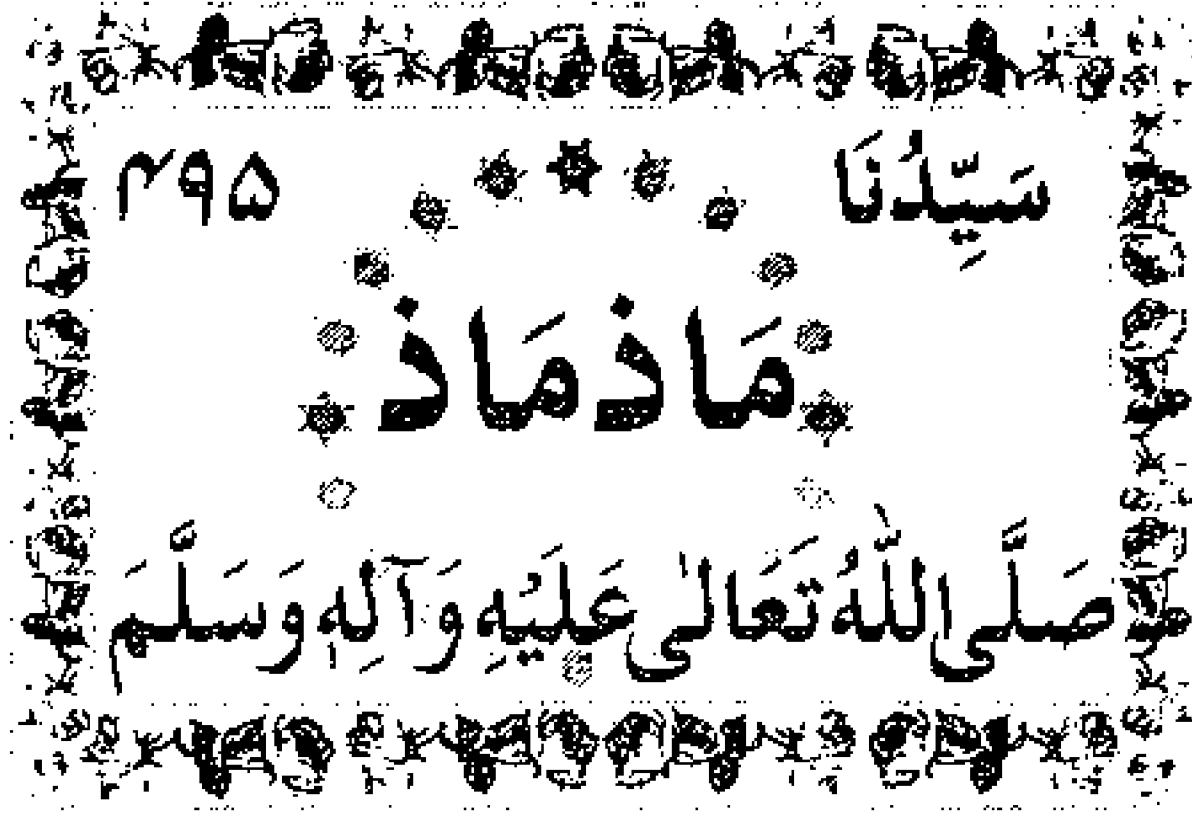 سَيِّدُنَا ۴۹۵
مَاذمَاذ
صَلَّى اللّٰهُ تَعَالىٰ عَلَيْهِ وَآلِهٖ وَسَلَّمَ